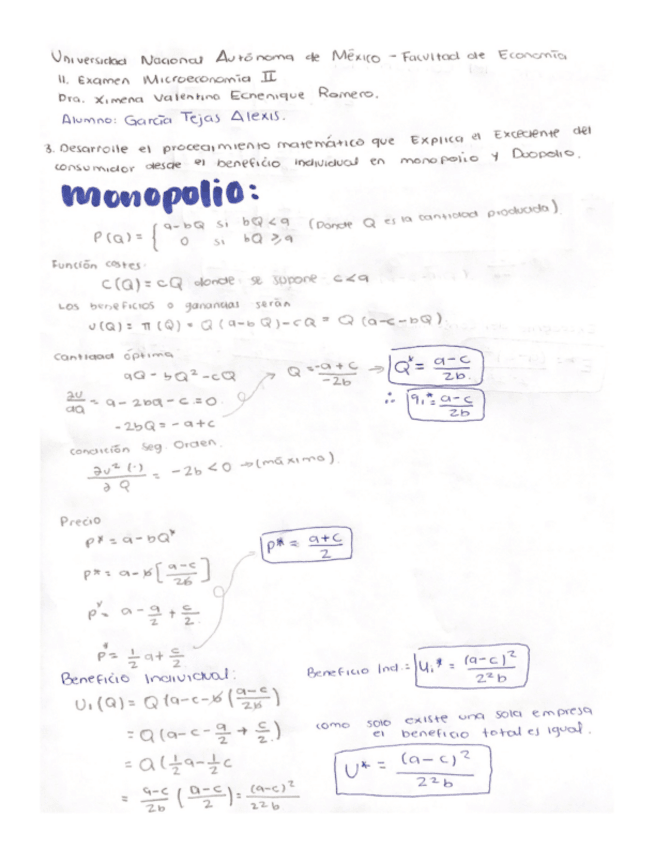 Universidad Nacional Autónoma de México - Facultad de Economía
II. Examen Microeconomía II
Dra. Ximena Valentina Echenique Romero.
Alumno: García Tejas Alexis.
3. Desarrolle el procedimiento matemático que Explica el Excedente del
consumidor desde el beneficio individual en monopolio y Duopolio.
monopolio:
P(Q) = { a-bQ si bQ < a (Donde Q es la cantidad producida)
0 si bQ ≥ a
Función costes:
C(Q) = cQ donde se supone c < a
Los beneficios o ganancias serán
U(Q) = π(Q) = Q(a-bQ)-cQ = Q(a-c-bQ)
Cantidad óptima
aQ - bQ² - cQ
∂U/∂Q = a - 2bQ - c = 0
-2bQ = -a+c
Q = -a+c/-2b → Q* = a-c/2b
∴ q₁* = a-c/2b
condición Seg. Orden.
∂U²(·)/∂Q = -2b < 0 → (máximo).
Precio
P* = a - bQ*
P* = a - b[a-c/2b]
P* = a - a/2 + c/2
P* = 1/2 a + c/2
P* = a+c/2
Beneficio Individual:
U₁(Q) = Q(a-c-b(a-c/2b)
= Q(a-c-a/2 + c/2)
= Q(1/2 a - 1/2 c
= a-c/2b (a-c/2) = (a-c)²/2²b
Beneficio Ind.= U₁* = (a-c)²/2²b
como solo existe una sola empresa
el beneficio total es igual.
U* = (a-c)²/2²b